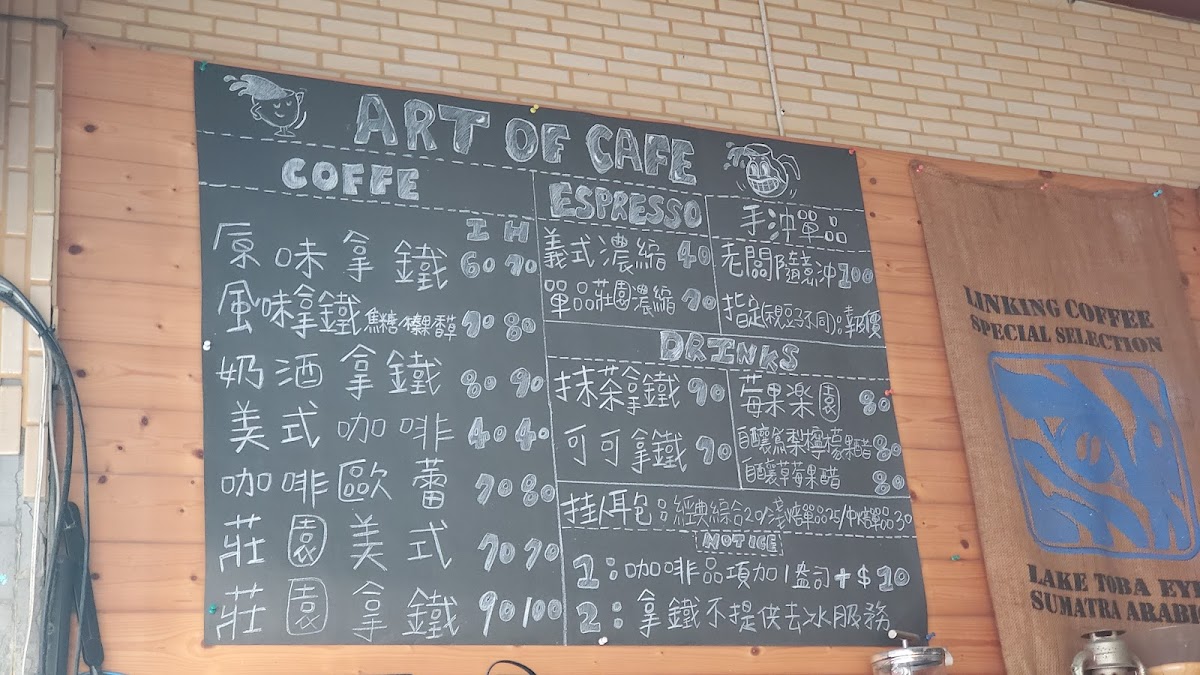 ART OF CAFE
COFFE
I H
原味拿鐵 60 70
風味拿鐵 焦糖、榛果、香草 70 80
奶酒拿鐵 80 90
美式咖啡 40 40
咖啡歐蕾 70 80
莊園美式 70 70
莊園拿鐵 90 100
ESPRESSO
義式濃縮 40
單品莊園濃縮 70
手沖單品
老闆隨意沖 100
指定(視豆子不同):報價
DRINKS
抹茶拿鐵 90
可可拿鐵 90
莓果樂園 80
自釀鳳梨檸檬果醋 80
自釀草莓果醋 80
挂耳包:經典綜合20/淺焙單品25/中焙單品30
NOTICE
1:咖啡品項加1盎司+$20
2:拿鐵不提供去冰服務
LINKING COFFEE
SPECIAL SELECTION
LAKE TOBA EYE
SUMATRA ARABI